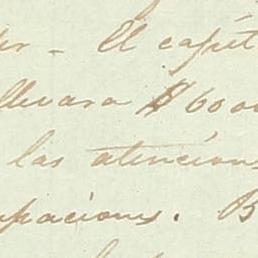 er - El capit
llevara $600
las atencion
upaciones. B